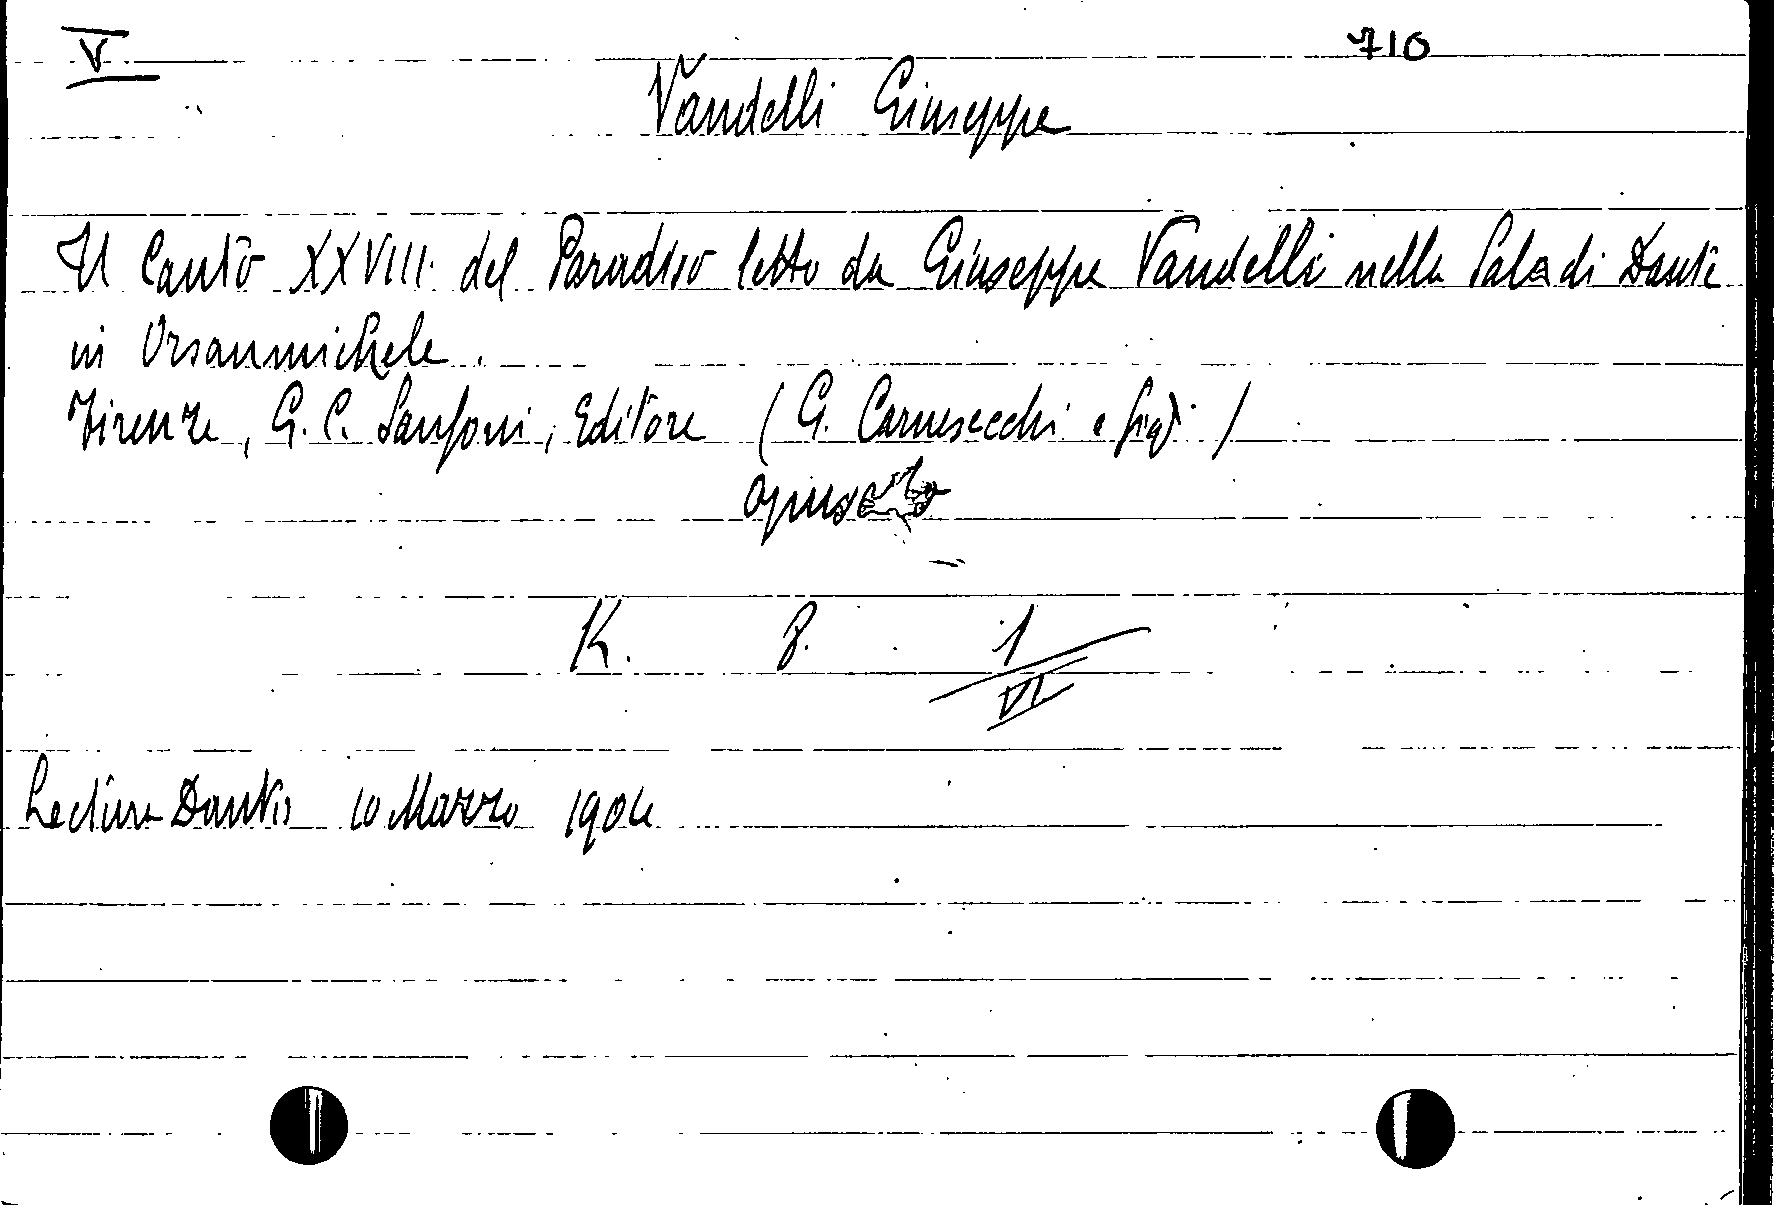 V 710
Vandelli Giuseppe
Il Canto XXVIII. del Paradiso letto da Giuseppe Vandelli nella Sala di Dante
in Orsanmichele.
Firenze, G. C. Sansoni, Editore (G. Carnesecchi e figli)
opuscolo
K. 8. 1
VI
Lectura Dantis 10 Marzo 1904